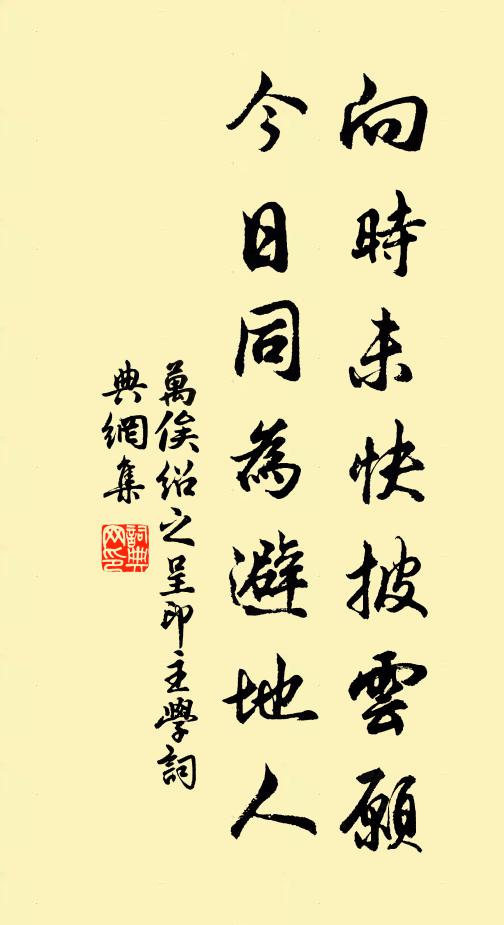 向時未快披雲願
今日同為避地人
萬俟紹之呈印主學詞
典網集
詞典網印